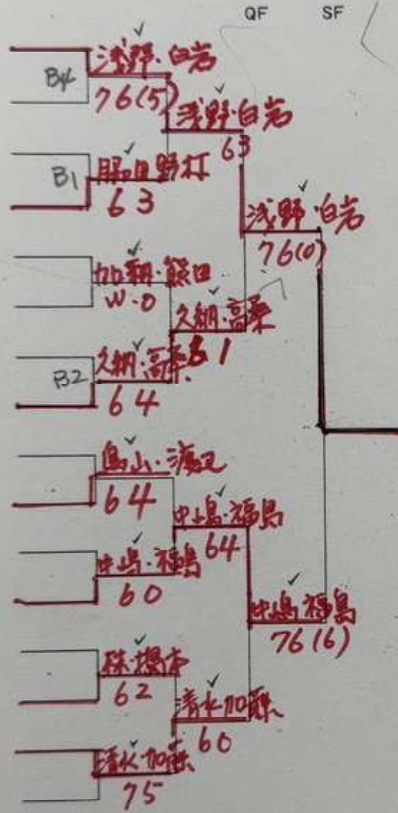 QF
SF
浅野・白岩
B4
76(5)
浅野・白岩
63
B1
63
浅野・白岩
76(0)
熊田
W.O
久納・高桑
61
B2
久納・高桑
64
鳥山・渡辺
64
中嶋・福島
64
中嶋・福島
60
中嶋 福島
76(6)
62
清水 加藤
60
清水・加藤
75